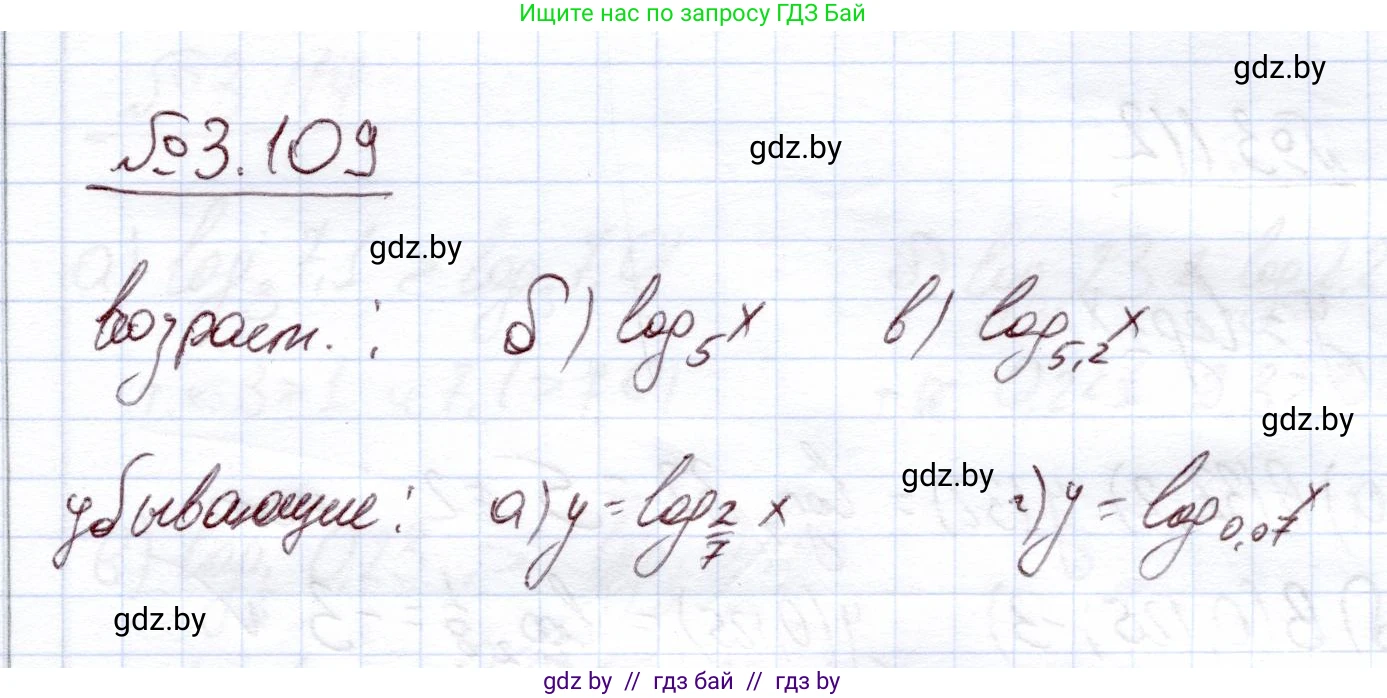 Ищите нас по запросу ГДЗ Бай
gdz.by
№3.109
gdz.by
gdz.by
возраст.: б) log₅x в) log₅,₂x
gdz.by
gdz.by
убывающие: а) y = log_{2/7} x г) y = log₀,₀₇x
gdz.by
gdz.by // гдз бай // гдз by